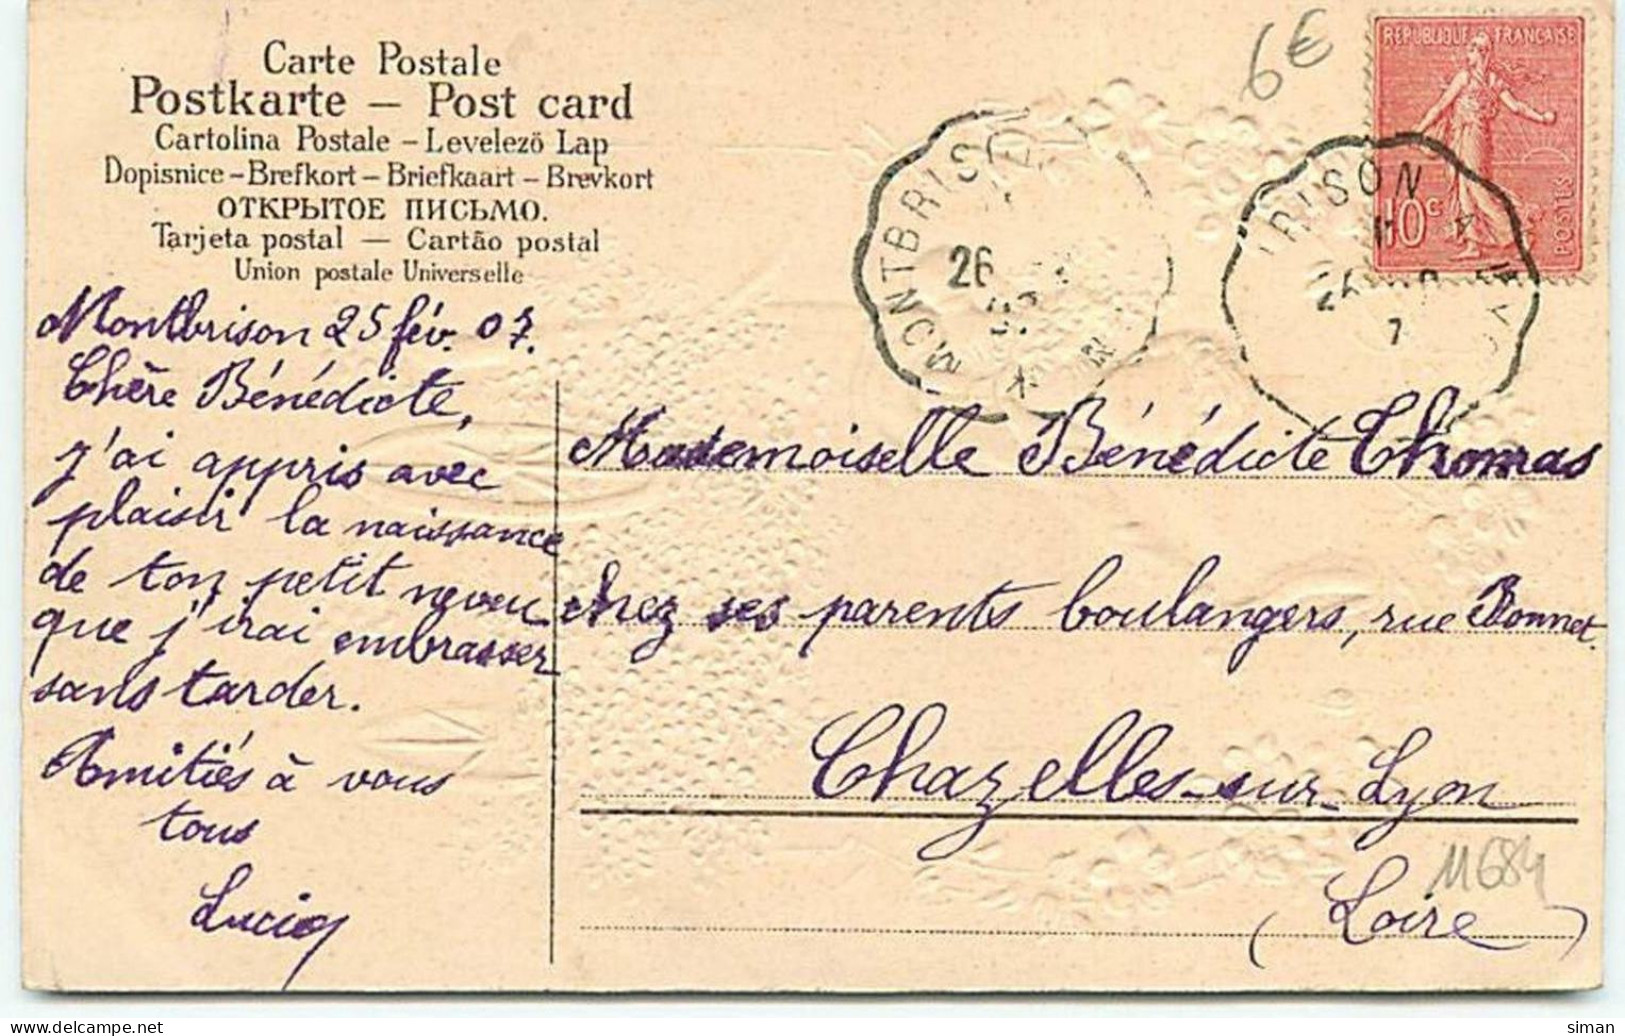 Carte Postale
Postkarte — Post card
Cartolina Postale – Levelező Lap
Dopisnice – Brefkort – Briefkaart – Brevkort
ОТКРЫТОЕ ПИСЬМО.
Tarjeta postal — Cartão postal
Union postale Universelle
6€
REPUBLIQUE FRANÇAISE
10c
POSTES
MONTBRISO
26
RISON
7
Montbrison 25 fév. 07.
Chère Bénédicte,
j'ai appris avec
plaisir la naissance
de ton petit neveu
que j'irai embrasser
sans tarder.
Amitiés à vous
tous
Mademoiselle Bénédicte Thomas
chez ses parents boulangers, rue Bonnet.
Chazelles-sur-Lyon
(Loire)
11684
delcampe.net
siman